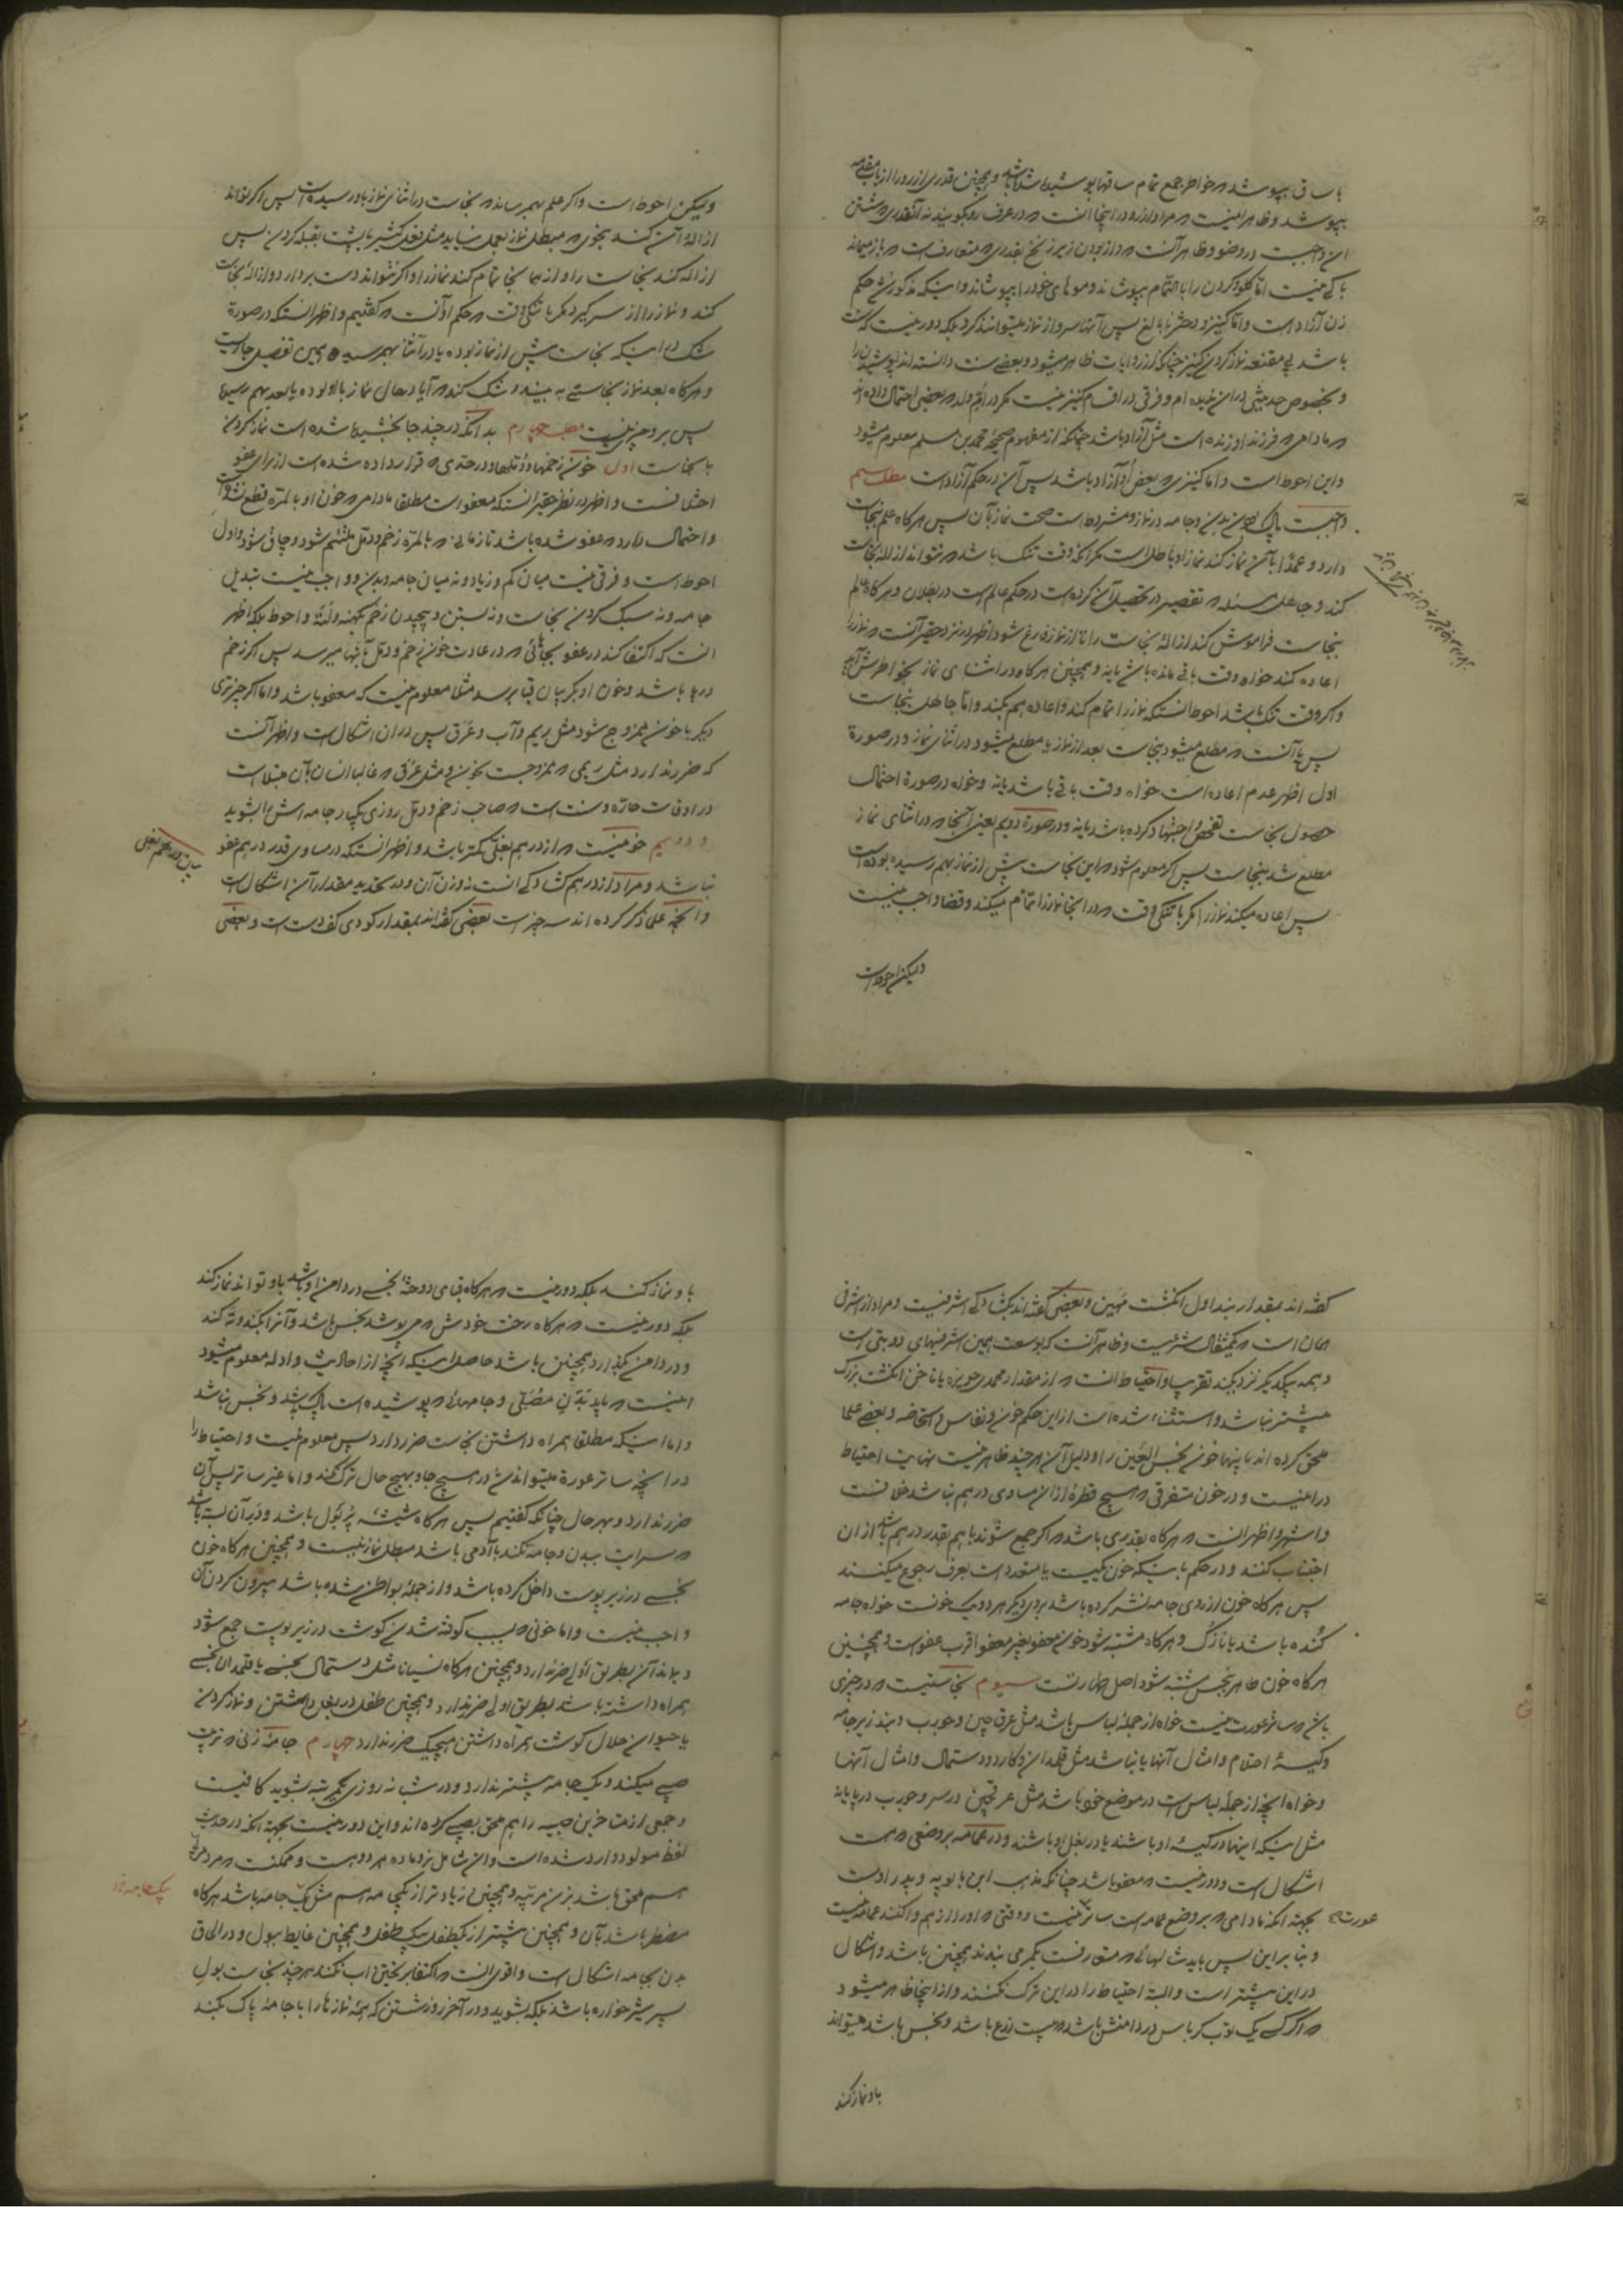 با ساق بپوشد و خواطر جمع تمام ساقها پوشیده باشد و همچنین قدری از رو را از باب مقدمه
بپوشد و ظاهر اینست و مراد از رو در اینجا انست که در عرف رو بگویند نه آنقدری که شستن
ان واجبست در وضو و ظاهر آنست که از بودن زیر زنخ بقدری که متعارفست که باز میماند
باکی نیست اما گلو و گردن را با اهتمام بپوشند و موهای خود را بپوشاند و اینکه مذکور شد حکم
زن آزاد است و اما کنیز و دختر نابالغ پس آنها سر واز نماز میتوانند کرد بلکه دور نیست که سنت
باشد بی مقنعه نماز کردن کنیز چنانکه از روایات ظاهر میشود و بعضی سنت دانسته اند پوشیدن را
و بخصوص حدیثی در این ندیده ام و فرقی در اقسام کنیز نیست مگر در ام ولد که بعضی احتمال داده اند
که مادامی که فرزند او زنده است مثل آزاد باشد چنانکه از مفهوم صحیحه محمد بن مسلم معلوم میشود
و این احوط است و اما کنیزی که بعض او آزاد باشد پس آن در حکم آزاد است مطلب سیم
واجبست پاک بودن بدن و جامه در نماز و مشروط است صحت نماز بآن پس هر گاه علم بنجاست
دارد و عمدا بآن نماز کند نماز او باطل است مگر آنکه وقت تنگ باشد که نتواند ازاله نجاست
کند و جاهل مسئله که تقصیر در تحصیل آن کرده است در حکم عالم است در بطلان و هر گاه علم
بنجاست فراموش کند ازاله نجاست را تا از نماز فارغ شود اظهر در نزد حقیر آنست که نماز را
اعاده کند خواه وقت باقی مانده باشد یا نه و همچنین هر گاه در اثنای نماز بخواطرش آید
و اگر وقت تنگ باشد احوط انستکه نماز را تمام کند و اعاده هم بکند و اما جاهل بنجاست
پس یا آنست که مطلع میشود بنجاست بعد از نماز یا مطلع میشود در اثنای نماز و در صورة
اول اظهر عدم اعاده است خواه وقت باقی باشد یا نه و خواه در صورة احتمال
حصول نجاست تفحص و اجتهاد کرده باشد یا نه و در صورة دویم یعنی آنجا که در اثنای نماز
مطلع شد بنجاست پس اگر معلوم شود که این نجاست پیش از نماز بهم رسیده بوده است
پس اعاده میکند نماز را مگر با تنگی وقت که در اینجا نماز را تمام میکند و قضا واجب نیست
ولیکن احوط است
ولیکن احوط است و اگر علم بهمرساند که نجاست در اثنای نماز باو رسیده است پس اگر تواند
ازاله آن کند بنحوی که مبطل نماز بعمل نیاید مثل فعل کثیر یا پشت بقبله کردن پس
ازاله کند نجاست را و از همانجا تمام کند نماز را و اگر نتواند دست بردارد و ازاله نجاست
کند و نماز را از سر گیرد مگر با تنگی وقت که حکم او آنست که گفتیم و اظهر انستکه در صورة
شک در اینکه نجاست پیش از نماز بوده یا در اثنا بهمرسیده همین تفصیل جاریست
و هر گاه بعد نماز نجاستی به بیند و شک کند که آیا در حال نماز با او بوده یا بعد بهم رسیده
پس بر او چیزی نیست مطلب چهارم بدانکه در چند جا بخشیده شده است نماز کردن
با نجاست اول خون زخمها و دملها و در حدی که قرار داده شده است از برای عفو
احتلافست و اظهر در نظر حقیر انستکه معفو است مطلقا مادامی که خون او بالمرّه قطع نشده است
و احتمال دارد که عفو شده باشد تا زمانی که بالمرّه زخم و دمل ملتئم شود و چاق شود و اول
احوط است و فرقی نیست میان کم و زیاد و نه میان جامه و بدن و واجب نیست تبدیل
جامه و نه سبک کردن نجاست و نه بستن و پیچیدن زخم بکهنه و لتّه و احوط بلکه اظهر
انست که اکتفا کند در عفو بجائی که در عادت خون زخم و دمل بآنها میرسد پس اگر زخم
در پا باشد و خون او بگریبان قبا برسد مثلا معلوم نیست که معفو باشد و اما اگر چیزی
دیگر با خون ممزوج شود مثل ریم و آب و عرق پس در ان اشکال است و اظهر آنست
که ضرر ندارد مثل ریمی که ممزوجست بخون و مثل عرق که غالبا انسان بآن مبتلاست
در اوقات حارّه و سنت است که صاحب زخم و دمل روزی یکبار جامه اش را بشوید
و دویم خونیست که از درهم بغلی کمتر باشد و اظهر انستکه در مساوی قدر درهم عفو
نباشد و مراد از درهم گشادگی انست نه وزن آن و در تحدید مقدار آن اشکال است
و آنچه علما ذکر کرده اند سه چیز است بعضی گفته اند بمقدار گودی کف دست است و بعضی
بیان درهم بغلی
گفته اند بمقدار بند اول انگشت مهین و بعضی گفته اند بگشادگی اشرفیست و مراد از اشرفی
همان است که یکمثقال شرعیست و ظاهر آنست که بوسعت همین اشرفیهای دوبتی است
و همه بیکدیگر نزدیکند تقریبا و احتیاط انست که از مقدار محمدی حویزه یا ناخن انگشت بزرگ
بیشتر نباشد و استثناء شده است از این حکم خون نفاس و استحاضه و بعضی علما
ملحق کرده اند باینها خون نجس العین را و دلیل آن هر چند ظاهر نیست نهایت احتیاط
در اینست و در خون متفرقی که هیچ قطره از ان مساوی درهم نباشد خلافست
و اشهر و اظهر انست که هر گاه بقدری باشد که اگر جمع شوند با هم بقدر درهم باشد از ان
اجتناب کنند و در حکم باینکه خون یکیست یا متعدد است بعرف رجوع میکنند
پس هر گاه خون از روی جامه نشر کرده باشد بروی دیگر هر دو یک خونست خواه جامه
گنده باشد یا نازک و هر گاه مشتبه شود خون معفو بغیر معفو اقرب عفو است و همچنین
هر گاه خون طاهر بنجس مشتبه شود اصل طهارتست سیوم نجاستیست که در چیزی
باشد که ساتر عورت نیست خواه از جمله لباس باشد مثل عرقچین و جورب و بند زیر جامه
و کیسه احتلام و امثال آنها یا نباشد مثل قلمدان و کارد و دستمال و امثال آنها
و خواه آنچه از جمله لباس است در موضع خود باشد مثل عرقچین در سر و جورب در پا یا نه
مثل اینکه اینها در کیسه او باشند یا در بغل او باشند و در عمامه بر وضعی که هست
اشکال است و دور نیست که معفو باشد چنانکه مذهب ابن بابویه و پدر اوست
بجهته انکه مادامی که بر وضع عمامه است ساتر نیست و وقتی که او را از هم وا کنند عمامه نیست
عورت
و بنا بر این پس باید شالهائی که متعارفست بکمر می بندند همچنین باشد و اشکال
در این بیشتر است و البته احتیاط را در این ترک نکنند و از اینجا ظاهر میشود
که اگر کسی یک توپ کرباس در دامنش باشد که بیست زرع باشد و نجس باشد میتواند
باو نماز کند
باو نماز کند بلکه دور نیست که هر گاه قبای دوخته نجسی در دامن او باشد باو تواند نماز کند
بلکه دور نیست که هر گاه رخت خودش که می پوشد نجس باشد و آنرا بکند و ته کند
و در دامن بگذارد همچنین باشد حاصل اینکه آنچه از احادیث و ادله معلوم میشود
اینست که باید بدن مصلّی و جامهائی که پوشیده است پاک باشد و نجس نباشد
و اما اینکه مطلقا همراه داشتن نجاست ضرر دارد پس معلوم نیست و احتیاط را
در آنچه ساتر عورة میتواند شد در هیچ جا و بهیچ حال ترک نکند و اما غیر ساتر پس آن
ضرر ندارد و بهر حال چنانکه گفتیم پس هر گاه شیشه پر بول باشد و در آن بسته باشد
که سرایت ببدن و جامه نکند با آدمی باشد مبطل نماز نیست و همچنین هر گاه خون
نجسی در زیر پوست داخل کرده باشد و از جمله بواطن شده باشد بیرون کردن آن
واجب نیست و اما خونی که بسبب کوفته شدن گوشت در زیر پوست جمع شود
و بماند آن بطریق اولی ضرر ندارد و همچنین هر گاه نسیانا مثل دستمال نجسی یا قلمدان نجسی
همراه داشته باشد بطریق اولی ضرر ندارد و همچنین طفل در بغل داشتن و نماز کردن
یا حیوان حلال گوشت همراه داشتن هیچیک ضرر ندارد چهارم جامه زنی که تربیت
صبی میکند و یک جامه بیشتر ندارد و در شبانه روزی یکمرتبه بشوید کافیست
و جمعی از متأخرین صبیه را هم ملحق بصبی کرده اند و این دور نیست بجهته انکه در حدیث
لفظ مولود وارد شده است و ان شامل نر و ماده هر دو هست و ممکنست که مرد مربّی
هم ملحق باشد بزن مربّیه و همچنین زیادتر از یکجامه هم مثل یک جامه باشد هر گاه
یکجامه
مضطر باشد بآن و همچنین بیشتر از یکطفل بیک طفل و همچنین غایط ببول و در الحاق
بدن بجامه اشکال است و اقوی انست که اکتفا بریختن اب نکند هر چند نجاست بول
پسر شیرخواره باشد بلکه بشوید و در آخر روز شستن که همه نمازها را با جامه پاک بکند